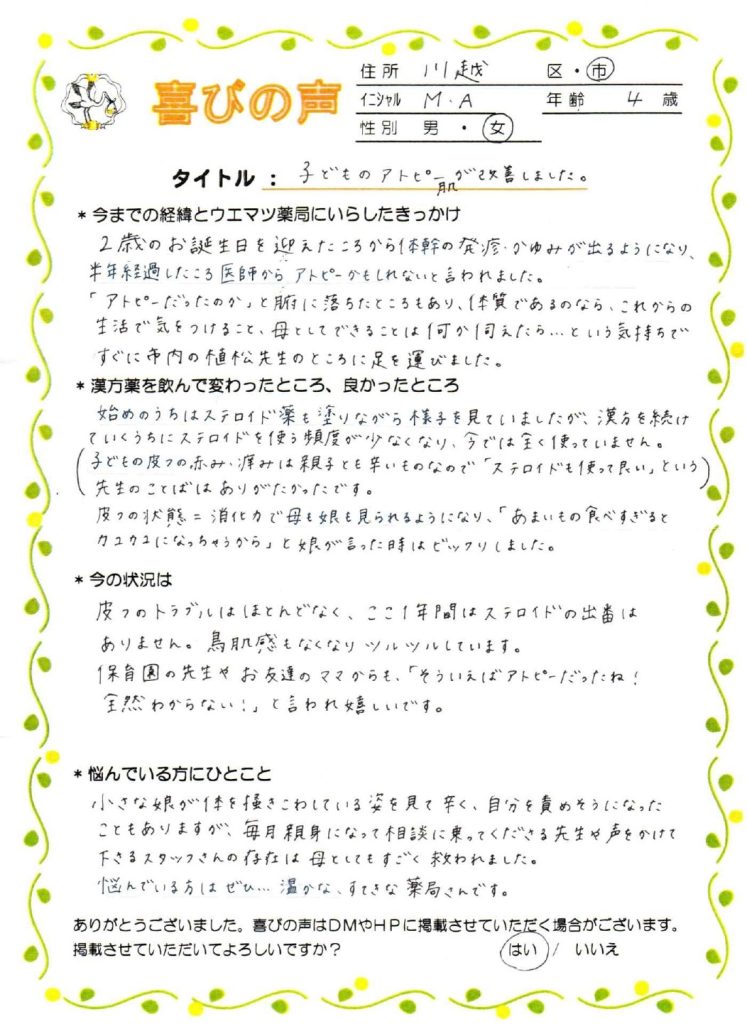 喜びの声
住所 川越 区・市
イニシャル M.A 年齢 4 歳
性別 男・女
タイトル : 子どものアトピー肌が改善しました。
* 今までの経緯とウエマツ薬局にいらしたきっかけ
2歳のお誕生日を迎えたころから体幹の発疹・かゆみが出るようになり、
半年経過したころ医師からアトピーかもしれないと言われました。
「アトピーだったのか」と腑に落ちたところもあり、体質であるのなら、これからの
生活で気をつけること、母としてできることは何か伺えたら…という気持ちで
すぐに市内の植松先生のところに足を運びました。
* 漢方薬を飲んで変わったところ、良かったところ
始めのうちはステロイド薬も塗りながら様子を見ていましたが、漢方を続け
ていくうちにステロイドを使う頻度が少なくなり、今では全く使っていません。
(子どもの皮フの赤み・痒みは親子とも辛いものなので「ステロイドも使って良い」という
先生のことばはありがたかったです。)
皮フの状態=消化力で母も娘も見られるようになり、「あまいもの食べすぎると
カユカユになっちゃうから」と娘が言った時はビックリしました。
* 今の状況は
皮フのトラブルはほとんどなく、ここ1年間はステロイドの出番は
ありません。鳥肌感もなくなりツルツルしています。
保育園の先生やお友達のママからも、「そういえばアトピーだったね!
全然わからない!」と言われ嬉しいです。
* 悩んでいる方にひとこと
小さな娘が体を掻きこわしている姿を見て辛く、自分を責めそうになった
こともありますが、毎月親身になって相談に乗ってくださる先生や声をかけて
下さるスタッフさんの存在は母としてもすごく救われました。
悩んでいる方はぜひ…温かな、すてきな薬局さんです。
ありがとうございました。喜びの声はDMやHPに掲載させていただく場合がございます。
掲載させていただいてよろしいですか? はい / いいえ